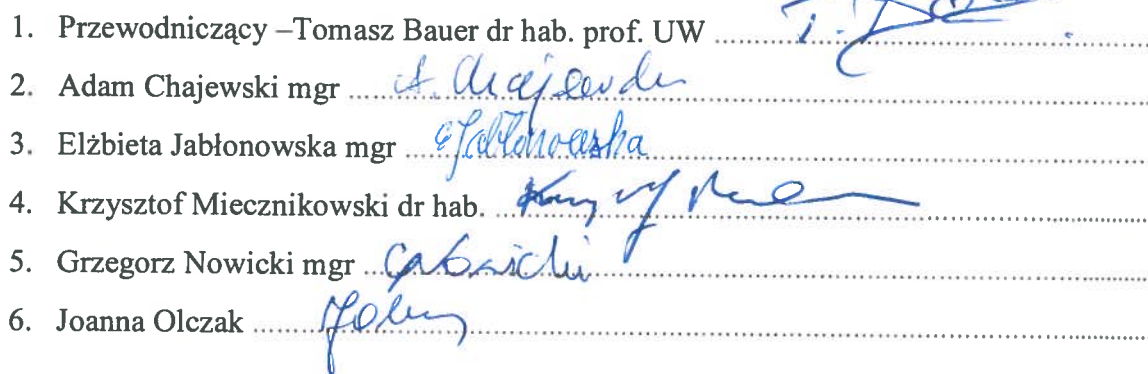 1. Przewodniczący –Tomasz Bauer dr hab. prof. UW
2. Adam Chajewski mgr A. Chajewski
3. Elżbieta Jabłonowska mgr EJabłonowska
4. Krzysztof Miecznikowski dr hab.
5. Grzegorz Nowicki mgr
6. Joanna Olczak